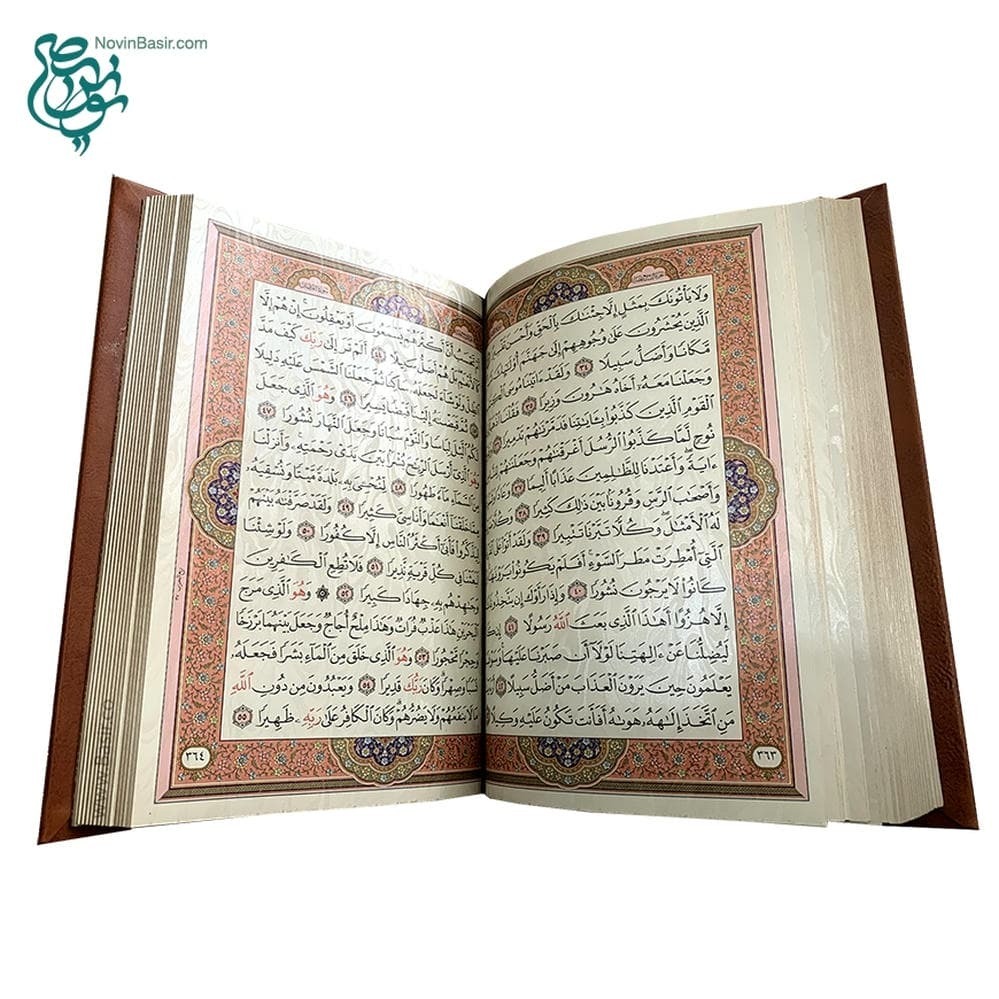 NovinBasir.com
وَلَا يَأْتُونَكَ بِمَثَلٍ إِلَّا جِئْنَٰكَ بِالْحَقِّ وَأَحْسَنَ
الَّذِينَ يُحْشَرُونَ عَلَىٰ وُجُوهِهِمْ إِلَىٰ جَهَنَّمَ
مَّكَانًا وَأَضَلُّ سَبِيلًا ٣٤ وَلَقَدْ ءَاتَيْنَا مُوسَى
وَجَعَلْنَا مَعَهُۥٓ أَخَاهُ هَٰرُونَ وَزِيرًا ٣٥ فَقُلْنَا
الْقَوْمِ الَّذِينَ كَذَّبُوا۟ بِـَٔايَٰتِنَا فَدَمَّرْنَٰهُمْ تَدْمِيرًا
نُوحٍ لَّمَّا كَذَّبُوا۟ الرُّسُلَ أَغْرَقْنَٰهُمْ وَجَعَلْنَٰهُمْ
ءَايَةً وَأَعْتَدْنَا لِلظَّٰلِمِينَ عَذَابًا أَلِيمًا ٣٧
وَأَصْحَٰبَ الرَّسِّ وَقُرُونًا بَيْنَ ذَٰلِكَ كَثِيرًا ٣٨
لَهُ الْأَمْثَٰلَ وَكُلًّا تَبَّرْنَا تَتْبِيرًا ٣٩ وَلَقَدْ أَتَوْا۟
الَّتِىٓ أُمْطِرَتْ مَطَرَ السَّوْءِ أَفَلَمْ يَكُونُوا۟
كَانُوا۟ لَا يَرْجُونَ نُشُورًا ٤٠ وَإِذَا رَأَوْكَ إِن
إِلَّا هُزُوًا أَهَٰذَا الَّذِى بَعَثَ اللَّهُ رَسُولًا ٤١
لَيُضِلُّنَا عَنْ ءَالِهَتِنَا لَوْلَآ أَن صَبَرْنَا عَلَيْهَا
يَعْلَمُونَ حِينَ يَرَوْنَ الْعَذَابَ مَنْ أَضَلُّ سَبِيلًا ٤٢
مَنِ اتَّخَذَ إِلَٰهَهُۥ هَوَىٰهُ أَفَأَنتَ تَكُونُ عَلَيْهِ وَكِيلًا
٣٦٣
تَحْسَبُ أَنَّ أَكْثَرَهُمْ يَسْمَعُونَ أَوْ يَعْقِلُونَ إِنْ هُمْ إِلَّا
كَالْأَنْعَٰمِ بَلْ هُمْ أَضَلُّ سَبِيلًا ٤٤ أَلَمْ تَرَ إِلَىٰ رَبِّكَ كَيْفَ مَدَّ
الظِّلَّ وَلَوْ شَآءَ لَجَعَلَهُۥ سَاكِنًا ثُمَّ جَعَلْنَا الشَّمْسَ عَلَيْهِ دَلِيلًا
ثُمَّ قَبَضْنَٰهُ إِلَيْنَا قَبْضًا يَسِيرًا ٤٦ وَهُوَ الَّذِى جَعَلَ
لَكُمُ الَّيْلَ لِبَاسًا وَالنَّوْمَ سُبَاتًا وَجَعَلَ النَّهَارَ نُشُورًا ٤٧
وَهُوَ الَّذِىٓ أَرْسَلَ الرِّيَٰحَ بُشْرًۢا بَيْنَ يَدَىْ رَحْمَتِهِۦ وَأَنزَلْنَا
مِنَ السَّمَآءِ مَآءً طَهُورًا ٤٨ لِّنُحْۦِىَ بِهِۦ بَلْدَةً مَّيْتًا وَنُسْقِيَهُۥ
مِمَّا خَلَقْنَآ أَنْعَٰمًا وَأَنَاسِىَّ كَثِيرًا ٤٩ وَلَقَدْ صَرَّفْنَٰهُ بَيْنَهُمْ
لِيَذَّكَّرُوا۟ فَأَبَىٰٓ أَكْثَرُ النَّاسِ إِلَّا كُفُورًا ٥٠ وَلَوْ شِئْنَا
لَبَعَثْنَا فِى كُلِّ قَرْيَةٍ نَّذِيرًا ٥١ فَلَا تُطِعِ الْكَٰفِرِينَ
وَجَٰهِدْهُم بِهِۦ جِهَادًا كَبِيرًا ٥٢ وَهُوَ الَّذِى مَرَجَ
الْبَحْرَيْنِ هَٰذَا عَذْبٌ فُرَاتٌ وَهَٰذَا مِلْحٌ أُجَاجٌ وَجَعَلَ بَيْنَهُمَا بَرْزَخًا
وَحِجْرًا مَّحْجُورًا ٥٣ وَهُوَ الَّذِى خَلَقَ مِنَ الْمَآءِ بَشَرًا فَجَعَلَهُۥ
نَسَبًا وَصِهْرًا وَكَانَ رَبُّكَ قَدِيرًا ٥٤ وَيَعْبُدُونَ مِن دُونِ اللَّهِ
مَا لَا يَنفَعُهُمْ وَلَا يَضُرُّهُمْ وَكَانَ الْكَافِرُ عَلَىٰ رَبِّهِۦ ظَهِيرًا ٥٥
٣٦٤